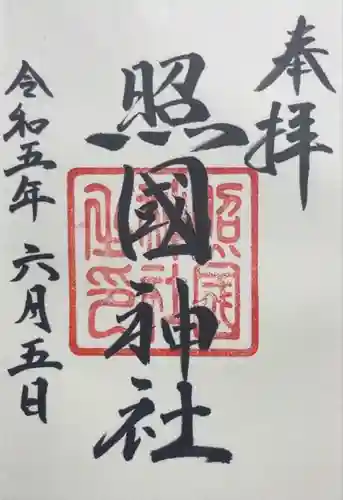 奉拝
照國神社
令和五年六月五日
照國神社之印